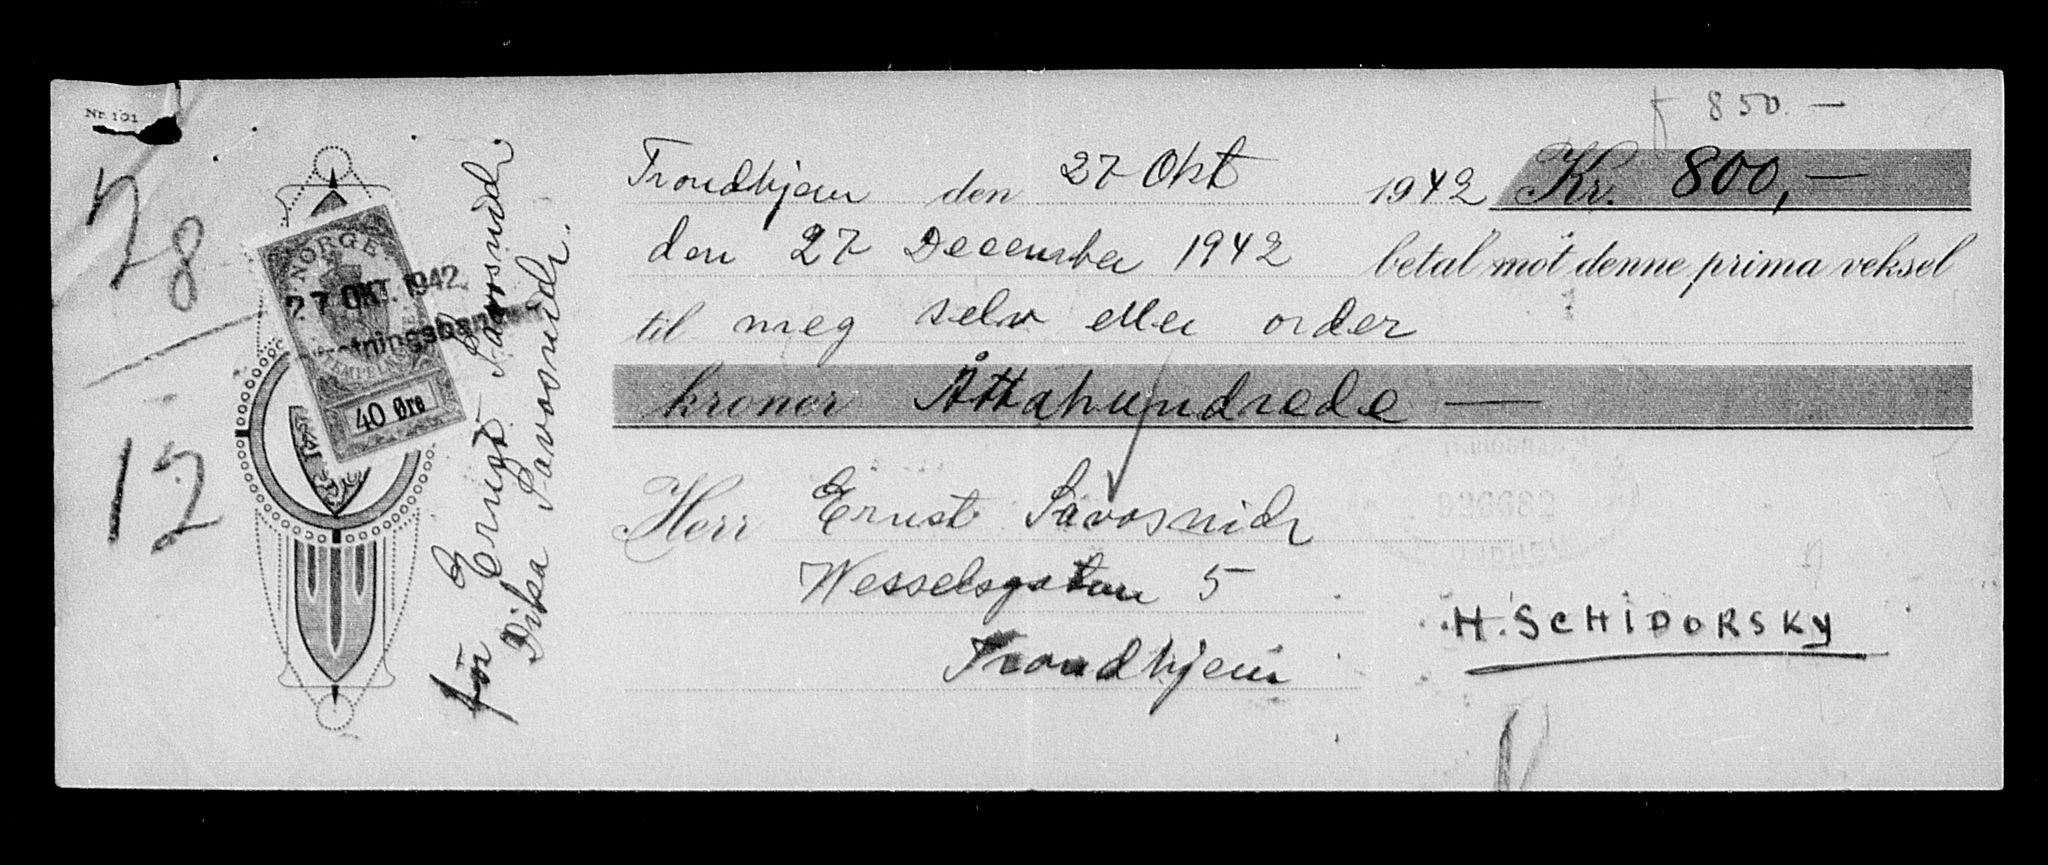 Nr. 101
850.—
Trondhjem den 27 Okt 1942 Kr. 800,—
den 27 December 1942 betal mot denne prima veksel
til meg selv eller order
kroner Åttahundrede —
Herr Ernst Savosnick
Wesselsgatan 5
Trondhjem
H. SCHIDORSKY
28
12
NORGE
27 OKT. 1942
STEMPEL
40 Øre
för Ernst Savosnick
Dika Savosnick.